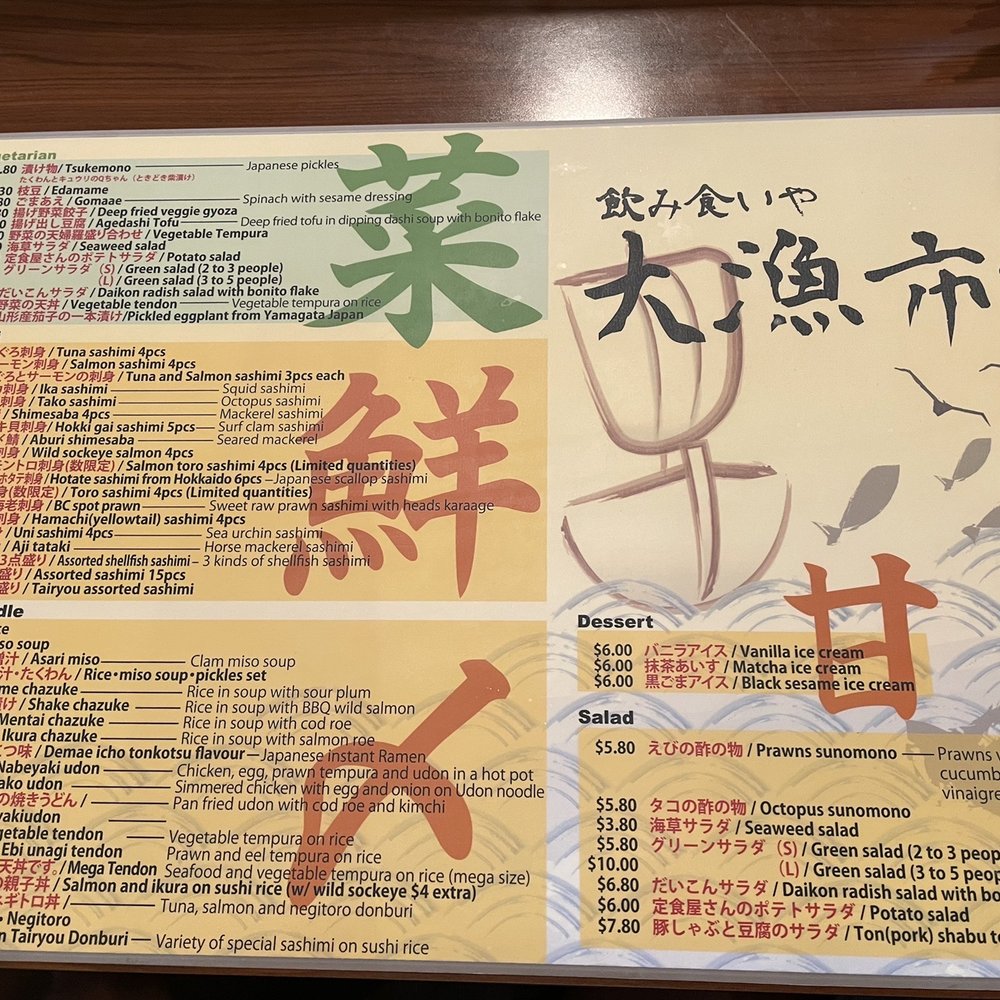 etarian
.80 漬け物/ Tsukemono Japanese pickles
たくわんとキュウリのQちゃん（ときどき柴漬け）
30 枝豆 / Edamame
80 ごまあえ / Gomaae Spinach with sesame dressing
揚げ野菜餃子 / Deep fried veggie gyoza
揚げ出し豆腐 / Agedashi Tofu Deep fried tofu in dipping dashi soup with bonito flake
野菜の天婦羅盛り合わせ / Vegetable Tempura
海草サラダ / Seaweed salad
定食屋さんのポテトサラダ / Potato salad
グリーンサラダ（S）/ Green salad (2 to 3 people)
（L）/ Green salad (3 to 5 people)
だいこんサラダ / Daikon radish salad with bonito flake
野菜の天丼 / Vegetable tendon Vegetable tempura on rice
山形産茄子の一本漬け/Pickled eggplant from Yamagata Japan
菜
ぐろ刺身 / Tuna sashimi 4pcs
ーモン刺身 / Salmon sashimi 4pcs
ぐろとサーモンの刺身 / Tuna and Salmon sashimi 3pcs each
刺身 / Ika sashimi Squid sashimi
刺身 / Tako sashimi Octopus sashimi
/ Shimesaba 4pcs Mackerel sashimi
キ貝刺身/ Hokki gai sashimi 5pcs Surf clam sashimi
〆鯖 / Aburi shimesaba Seared mackerel
刺身 / Wild sockeye salmon 4pcs
モントロ刺身(数限定) / Salmon toro sashimi 4pcs (Limited quantities)
ホタテ刺身/Hotate sashimi from Hokkaido 6pcs Japanese scallop sashimi
身(数限定) / Toro sashimi 4pcs (Limited quantities)
海老刺身 / BC spot prawn Sweet raw prawn sashimi with heads karaage
刺身 / Hamachi(yellowtail) sashimi 4pcs
/ Uni sashimi 4pcs Sea urchin sashimi
/ Aji tataki Horse mackerel sashimi
3点盛り / Assorted shellfish sashimi – 3 kinds of shellfish sashimi
盛り / Assorted sashimi 15pcs
盛り / Tairyou assorted sashimi
鮮
dle
ce
so soup
噌汁 / Asari miso Clam miso soup
汁・たくわん / Rice・miso soup・pickles set
me chazuke Rice in soup with sour plum
漬け / Shake chazuke Rice in soup with BBQ wild salmon
Mentai chazuke Rice in soup with cod roe
Ikura chazuke Rice in soup with salmon roe
こつ味 / Demae icho tonkotsu flavour Japanese instant Ramen
Nabeyaki udon Chicken, egg, prawn tempura and udon in a hot pot
ako udon Simmered chicken with egg and onion on Udon noodle
の焼きうどん / Pan fried udon with cod roe and kimchi
yakiudon
getable tendon Vegetable tempura on rice
Ebi unagi tendon Prawn and eel tempura on rice
天丼です。/ Mega Tendon Seafood and vegetable tempura on rice (mega size)
の親子丼 / Salmon and ikura on sushi rice (w/ wild sockeye $4 extra)
ネギトロ丼 / Tuna, salmon and negitoro donburi
・Negitoro
n Tairyou Donburi Variety of special sashimi on sushi rice
〆
飲み食いや
大漁市
甘
Dessert
$6.00 バニラアイス / Vanilla ice cream
$6.00 抹茶あいす / Matcha ice cream
$6.00 黒ごまアイス / Black sesame ice cream
Salad
$5.80 えびの酢の物 / Prawns sunomono Prawns
cucumb
vinaigre
$5.80 タコの酢の物 / Octopus sunomono
$3.80 海草サラダ / Seaweed salad
$5.80 グリーンサラダ（S）/ Green salad (2 to 3 peop
$10.00 （L）/ Green salad (3 to 5 peop
$6.80 だいこんサラダ / Daikon radish salad with bo
$6.00 定食屋さんのポテトサラダ / Potato salad
$7.80 豚しゃぶと豆腐のサラダ / Ton(pork) shabu to